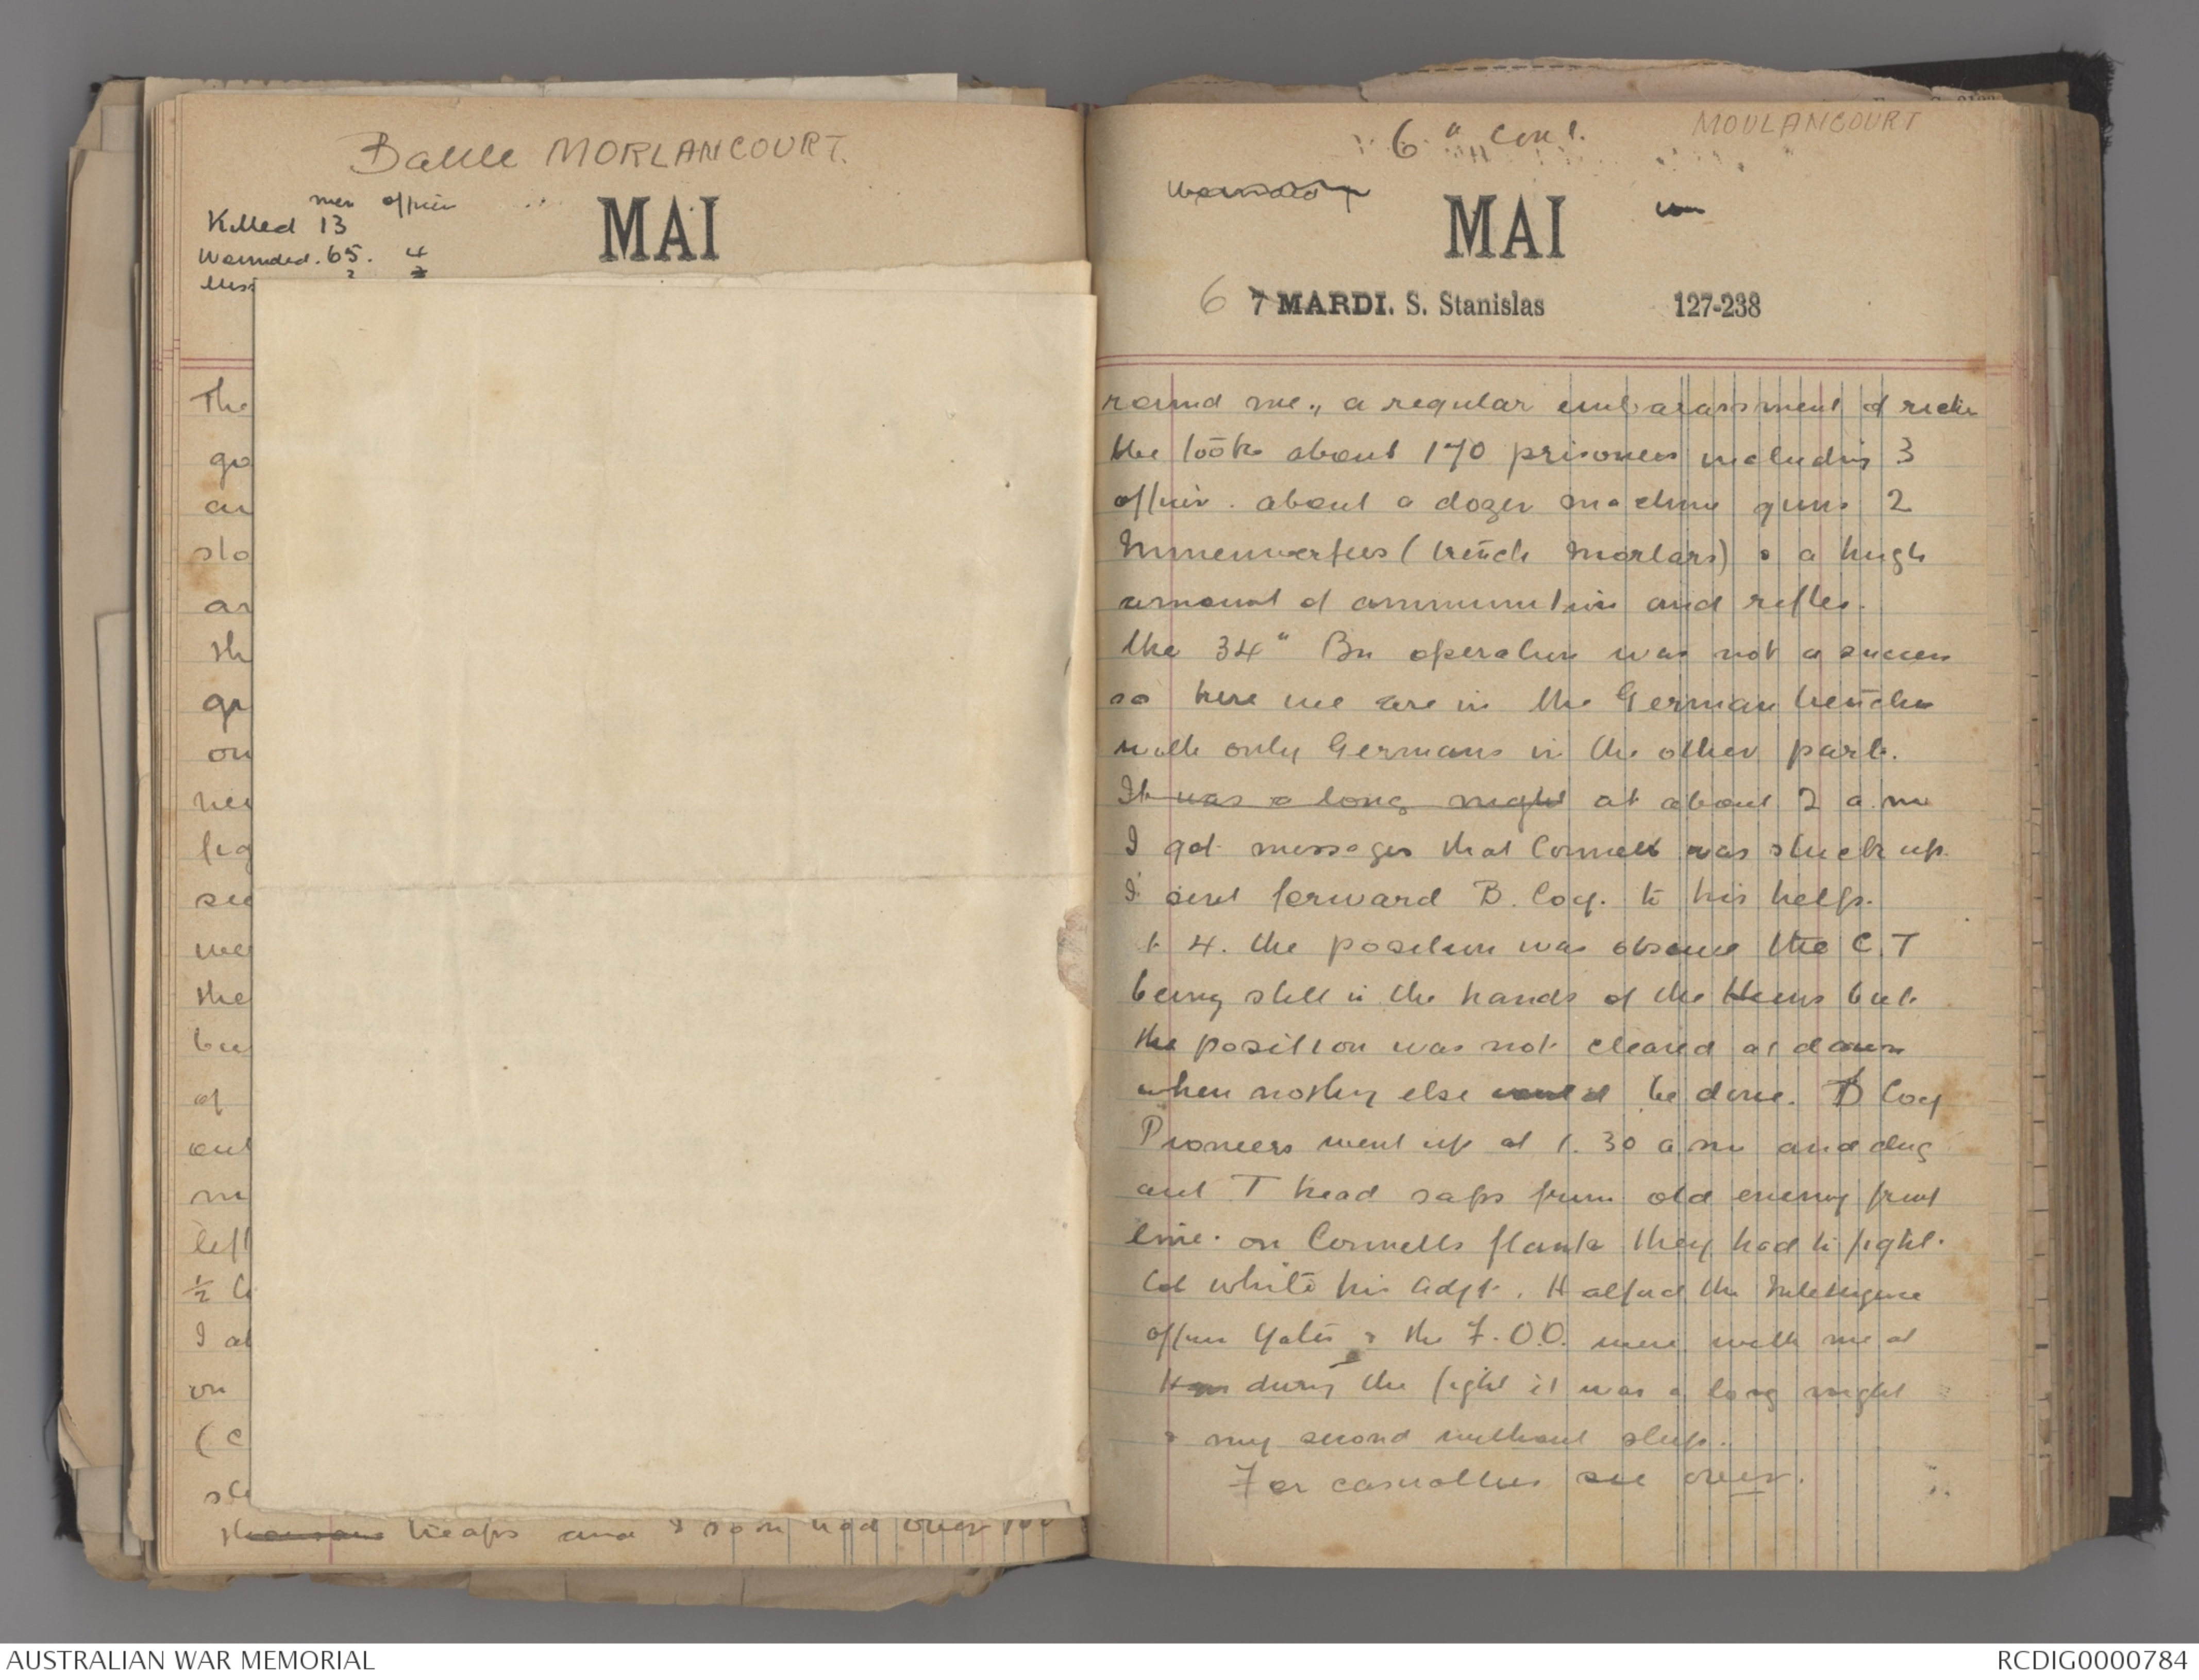 Battle MORLANCOURT.
men officer
Killed 13
Wounded. 65. 4
Miss 2
MAI
The
go
an
slo
ar
th
gr
on
nei
fig
see
we
the
bu
of
out
m
left
1/2 C
I al
on
(C
sle
heaps and I soon had over 100
6" Cont. MOULANCOURT
MAI
6 7 MARDI. S. Stanislas 127-238
round me, a regular embarassment of riche
We took about 170 prisoners includin 3
officer. about a dozen machine guns 2
Minenwerfers (trench Mortars) & a hugh
amount of ammunition and rifles.
the 34" Bn operation was not a success
so here we are in the German trenches
with only Germans in the other part.
It was a long night at about 2 a.m
I got messages that Connell was stuck up
I sent forward B. Coy. to his help.
t 4. the position was obscure the C.T
being still in the hands of the Huns but
the position was not cleared at dawn
when nothing else could be done. D Coy
Pioneers went up at 1.30 a m and dug
out T head saps from old enemy front
line. on Connells flank they had to fight.
Col White his Adjt. Halford the Intelligence
officer Yates & the F.O.O. were with me at
during the fight it was a long night
& my second without sleep.
For casualties see over.
AUSTRALIAN WAR MEMORIAL
RCDIG0000784